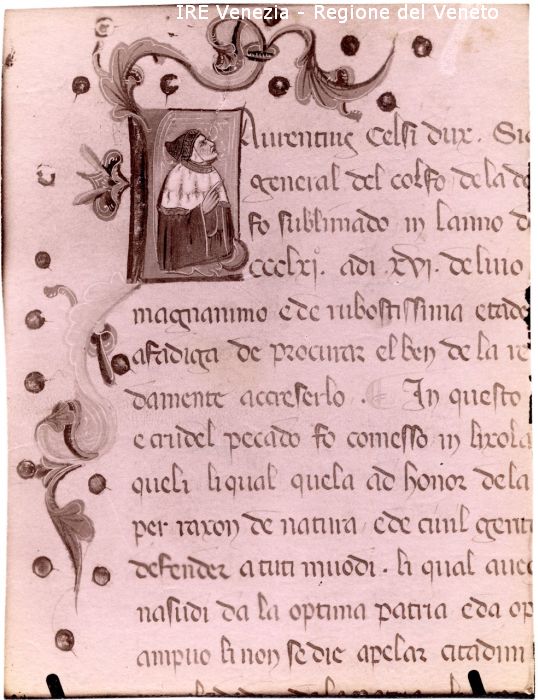 IRE Venezia - Regione del Veneto
Laurentius Celsi dux. Si
general del colfo de la
fo sublimado in lanno d
ccclxi. adi .xvi. de luio
magnanimo e de rubostissima etade
afadiga de procurar el ben de la re
damente accreserlo. In questo
e crudel pecado fo comesso in lixola
queli li qual quela ad honor de la
per raxon de natura e de ciuil genti
defender a tuti muodi. li qual aue
nasudi da la optima patria e da op
li non se die apelar citadini